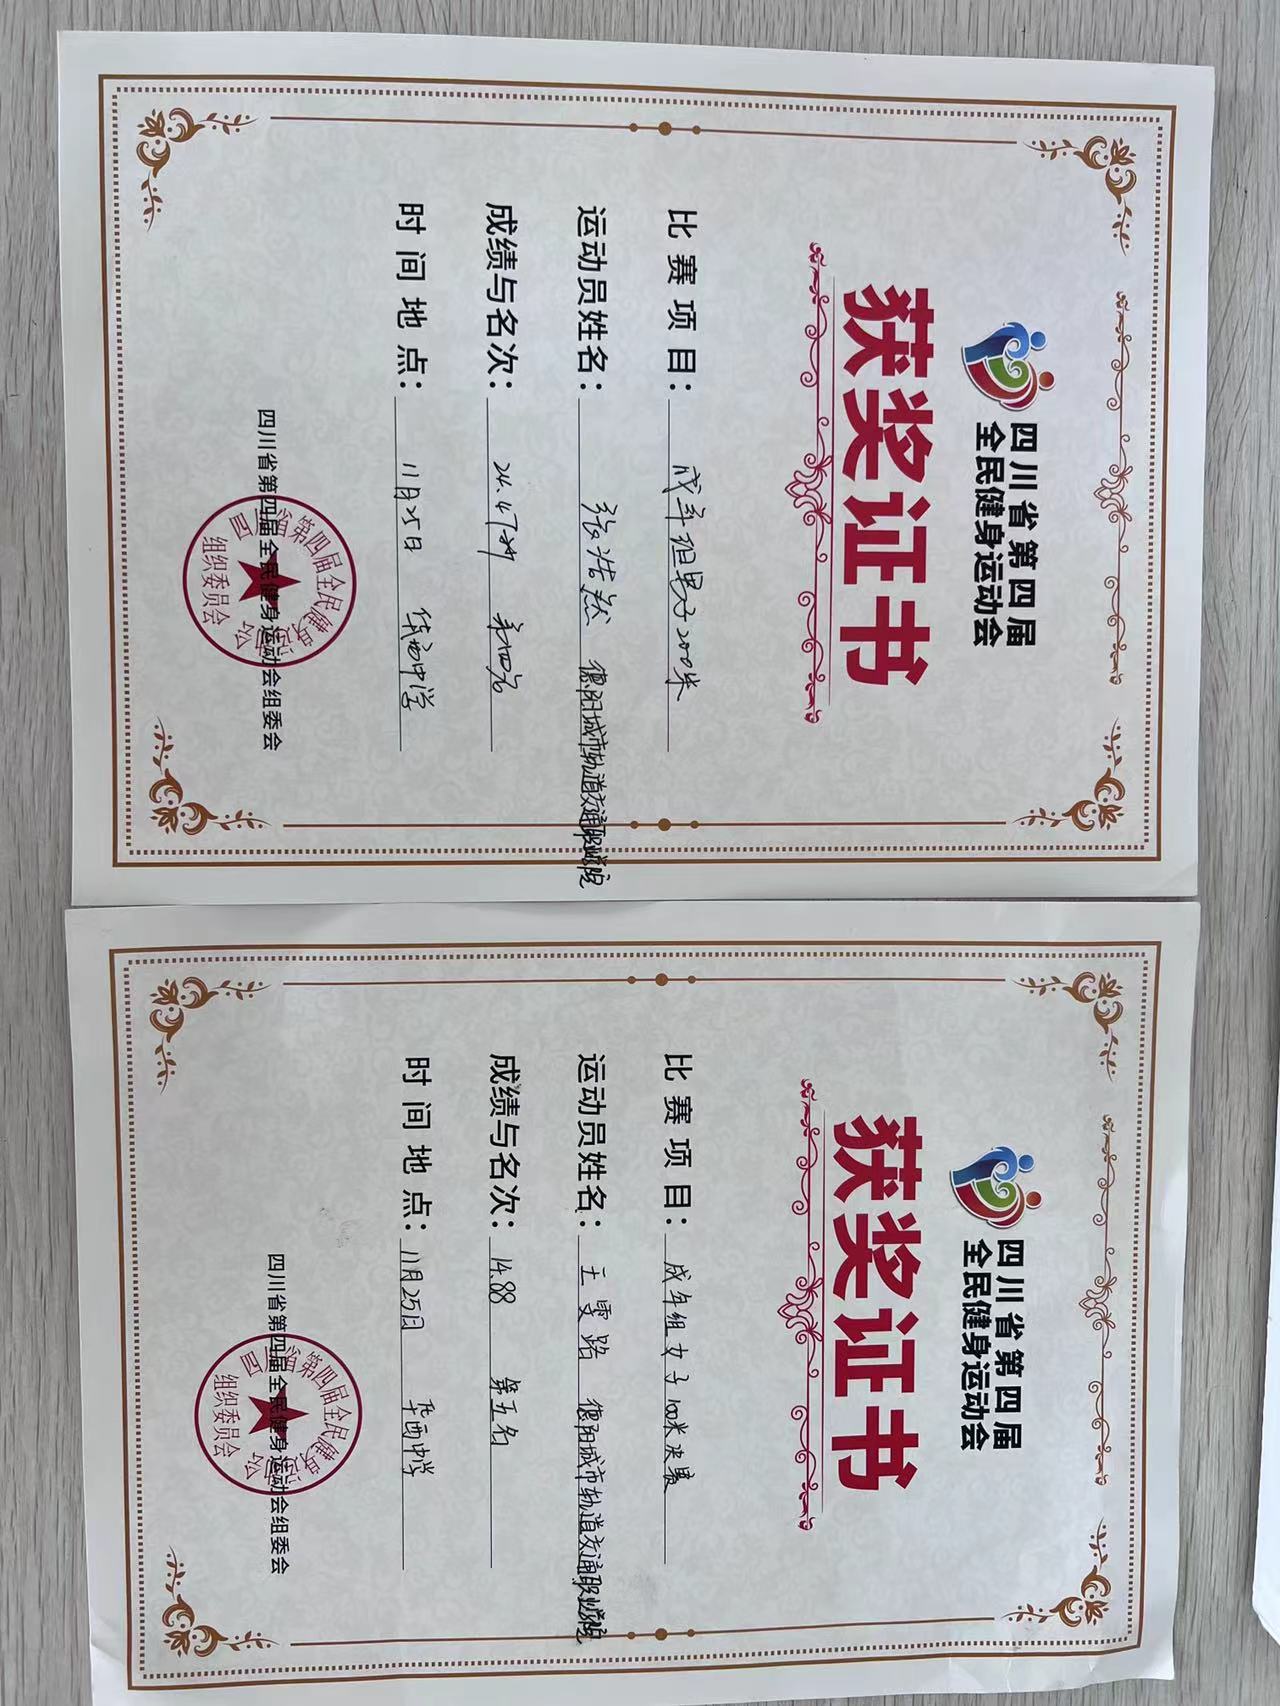 四川省第四届
全民健身运动会
获奖证书
比赛项目：成年组男子200米
运动员姓名：张浩然 德阳城市轨道交通职业学院
成绩与名次：24.47秒 第四名
时间地点：11月25日 华西中学
四川省第四届全民健身运动会组委会
组织委员会
四川省第四届
全民健身运动会
获奖证书
比赛项目：成年组女子100米决赛
运动员姓名：王雯路 德阳城市轨道交通职业学院
成绩与名次：14.88 第五名
时间地点：11月25日 华西中学
四川省第四届全民健身运动会组委会
组织委员会